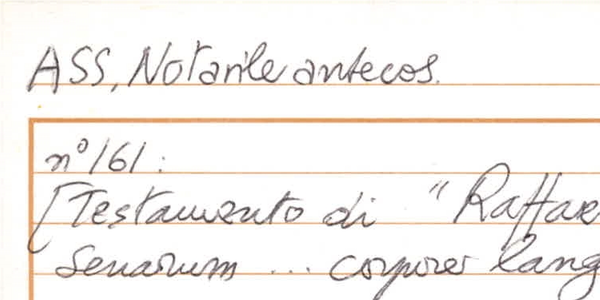 ASS, Notarile antecos.
n° 161:
[Testamento di "Raffae
Senarum ... corpore lang